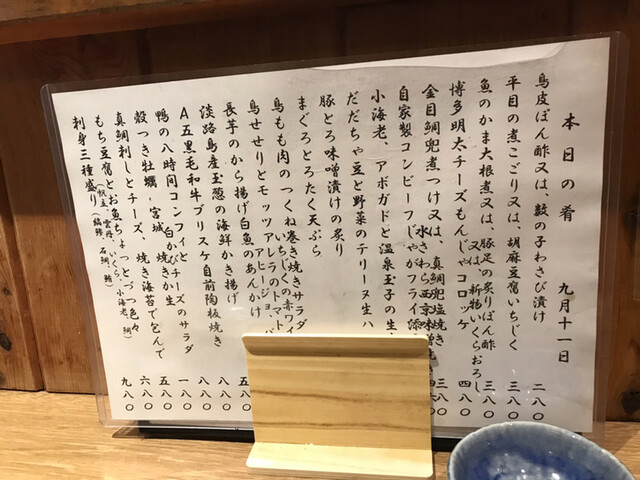 本日の肴　九月十一日
鳥皮ぽん酢又は、数の子わさび漬け 二八〇
平目の煮こごり又は、胡麻豆腐いちじく 三八〇
魚のかま大根煮又は、豚足の炙りぽん酢 三八〇
又は、新物いくらおろし
博多明太チーズもんじゃコロッケ 四八〇
金目鯛兜煮つけ又は、真鯛兜塩焼き
水さわら西京味噌
自家製コンビーフじゃがフライ添 三八〇
小海老、アボガドと温泉玉子の生
だだちゃ豆と野菜のテリーヌ生ハ
豚とろ味噌漬けの炙り
まぐろとろたく天ぷら
鳥もも肉のつくね巻き焼きサラダ
いちじくの赤ワイ
鳥せせりとモッツァレラのトマト
アヒージョ、バ
長芋のから揚げ白魚のあんかけ 五八
淡路島産玉葱の海鮮かき揚げ 八八〇
A五黒毛和牛ブリスケ自前陶板焼き 八八〇
鴨の八時间コンフィとチーズのサラダ 一八〇
殻つき牡蠣-宮城-焼きか生 五八〇
白かび
真鯛刺しとチーズ、焼き海苔で包んで 六八〇
もち豆腐とお魚ちょっとづつ色々
(帆立、雲丹、いくら、小海老、鯛)
刺身三種盛り 九八〇
(縞鯵、石鯛、鮪)